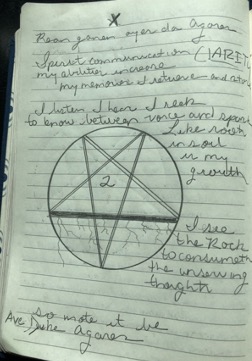 X
Renan ganen ayer da Agares
Spirit communication (HARE)
my abilities increase
my memories I retrieve and
I listen I hear I seek
to know between voice and
Like roots
in soil
is my
growth
2
I see
the Rock
to consumeth
the unserving
thoughts
so mote it be
Ave Duke Agares